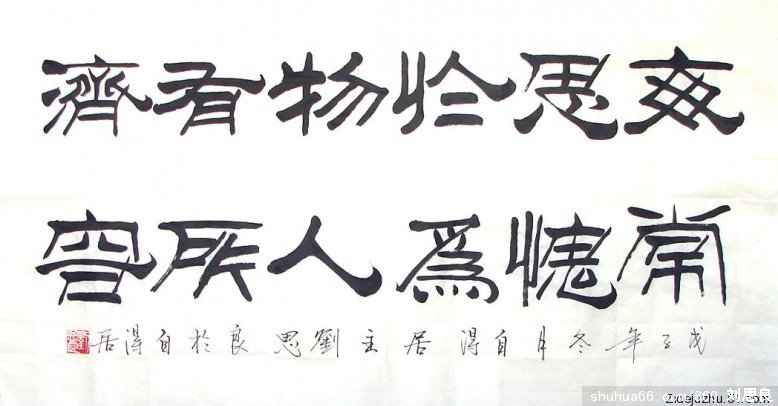 每思於物有濟
常愧爲人所容
戊子年冬月自得居主劉思良於自得居
shuhua66. 刘思良